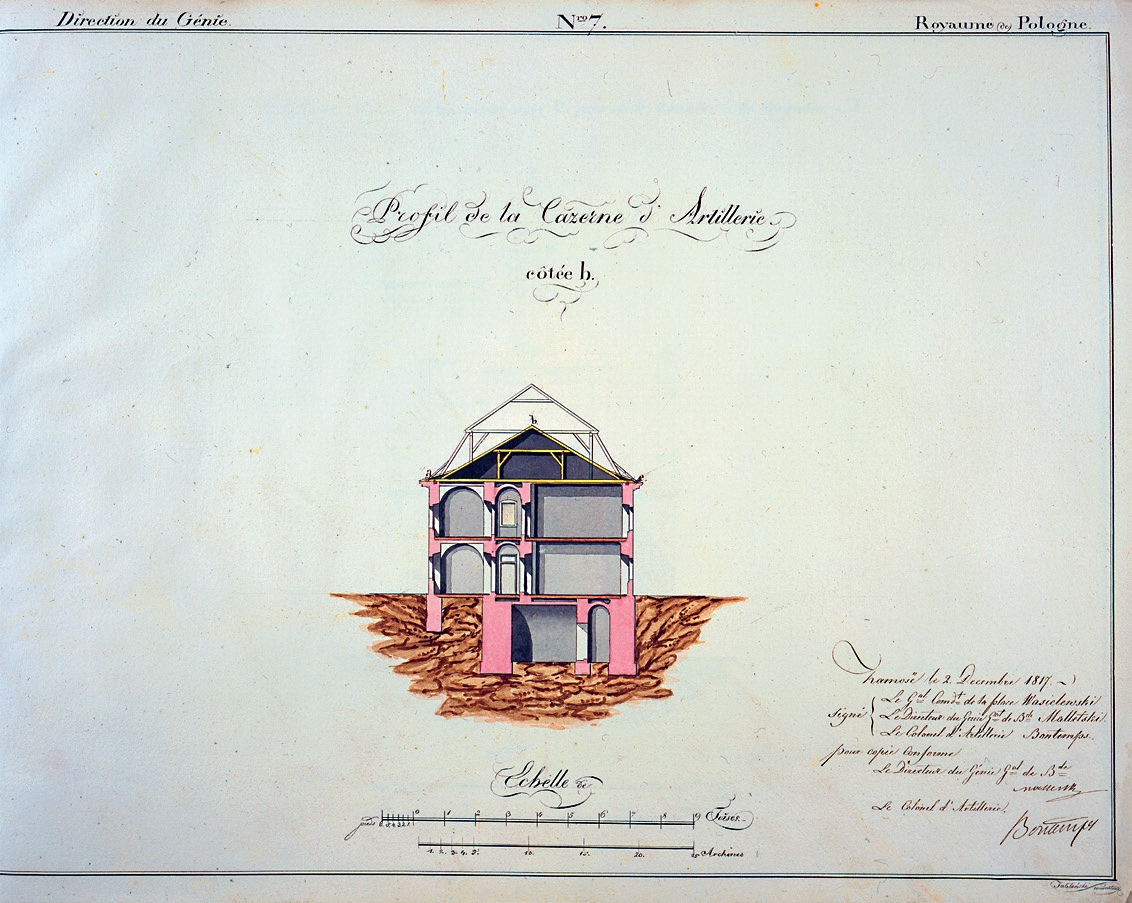 Direction du Génie.
Nro 7.
Royaume de Pologne.
Profil de la Cazerne d'Artillerie.
côtée b.
b
a
c
Zamosć le 2. Decembre 1817.
signé
Le Gal Comdt de la place Wasielewski
Le Directeur du Genie Gal de Bde Malletski.
Le Colonel d'Artillerie Bontemps.
pour copie conforme
Le Directeur du Génie Gal de Bde
Le Colonel d'Artillerie.
Bontemps
Echelle de
pieds 0 1 2 3 4 5 6 7 8 9 Toises.
1. 2. 3. 4. 5. 10. 15. 20. 25 Archines